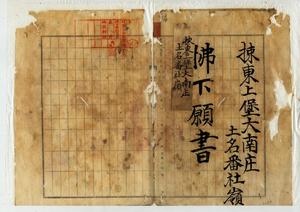 揀東上堡大南庄
土名番社嶺
拂下願書
揀東上堡大南庄
土名番社嶺